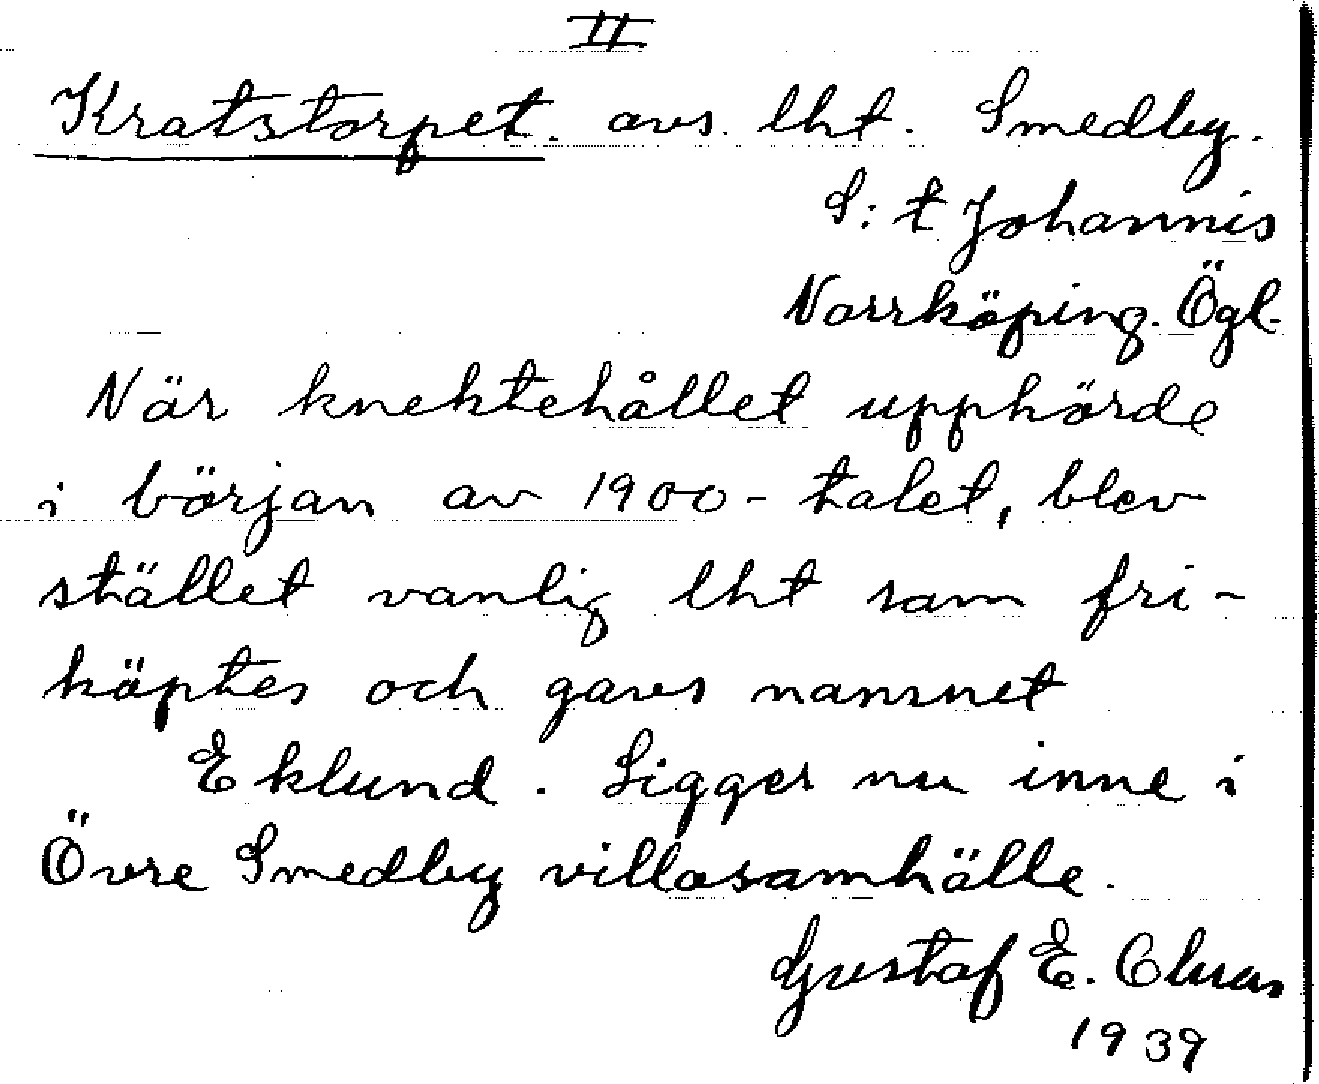 II
Kratstorpet. avs. lht. Smedby.
S:t Johannis
Norrköping. Ögl.
När knektehållet upphörde
i början av 1900-talet, blev
stället vanlig lht som fri-
köptes och gavs namnet
Eklund. Ligger nu inne i
Övre Smedby villasamhälle.
Gustaf E.
1939